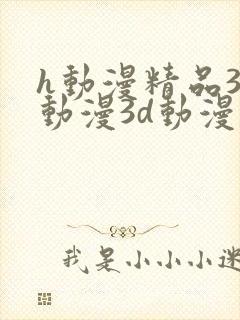 h動漫精品3
動漫3d動漫
我是小小小迷